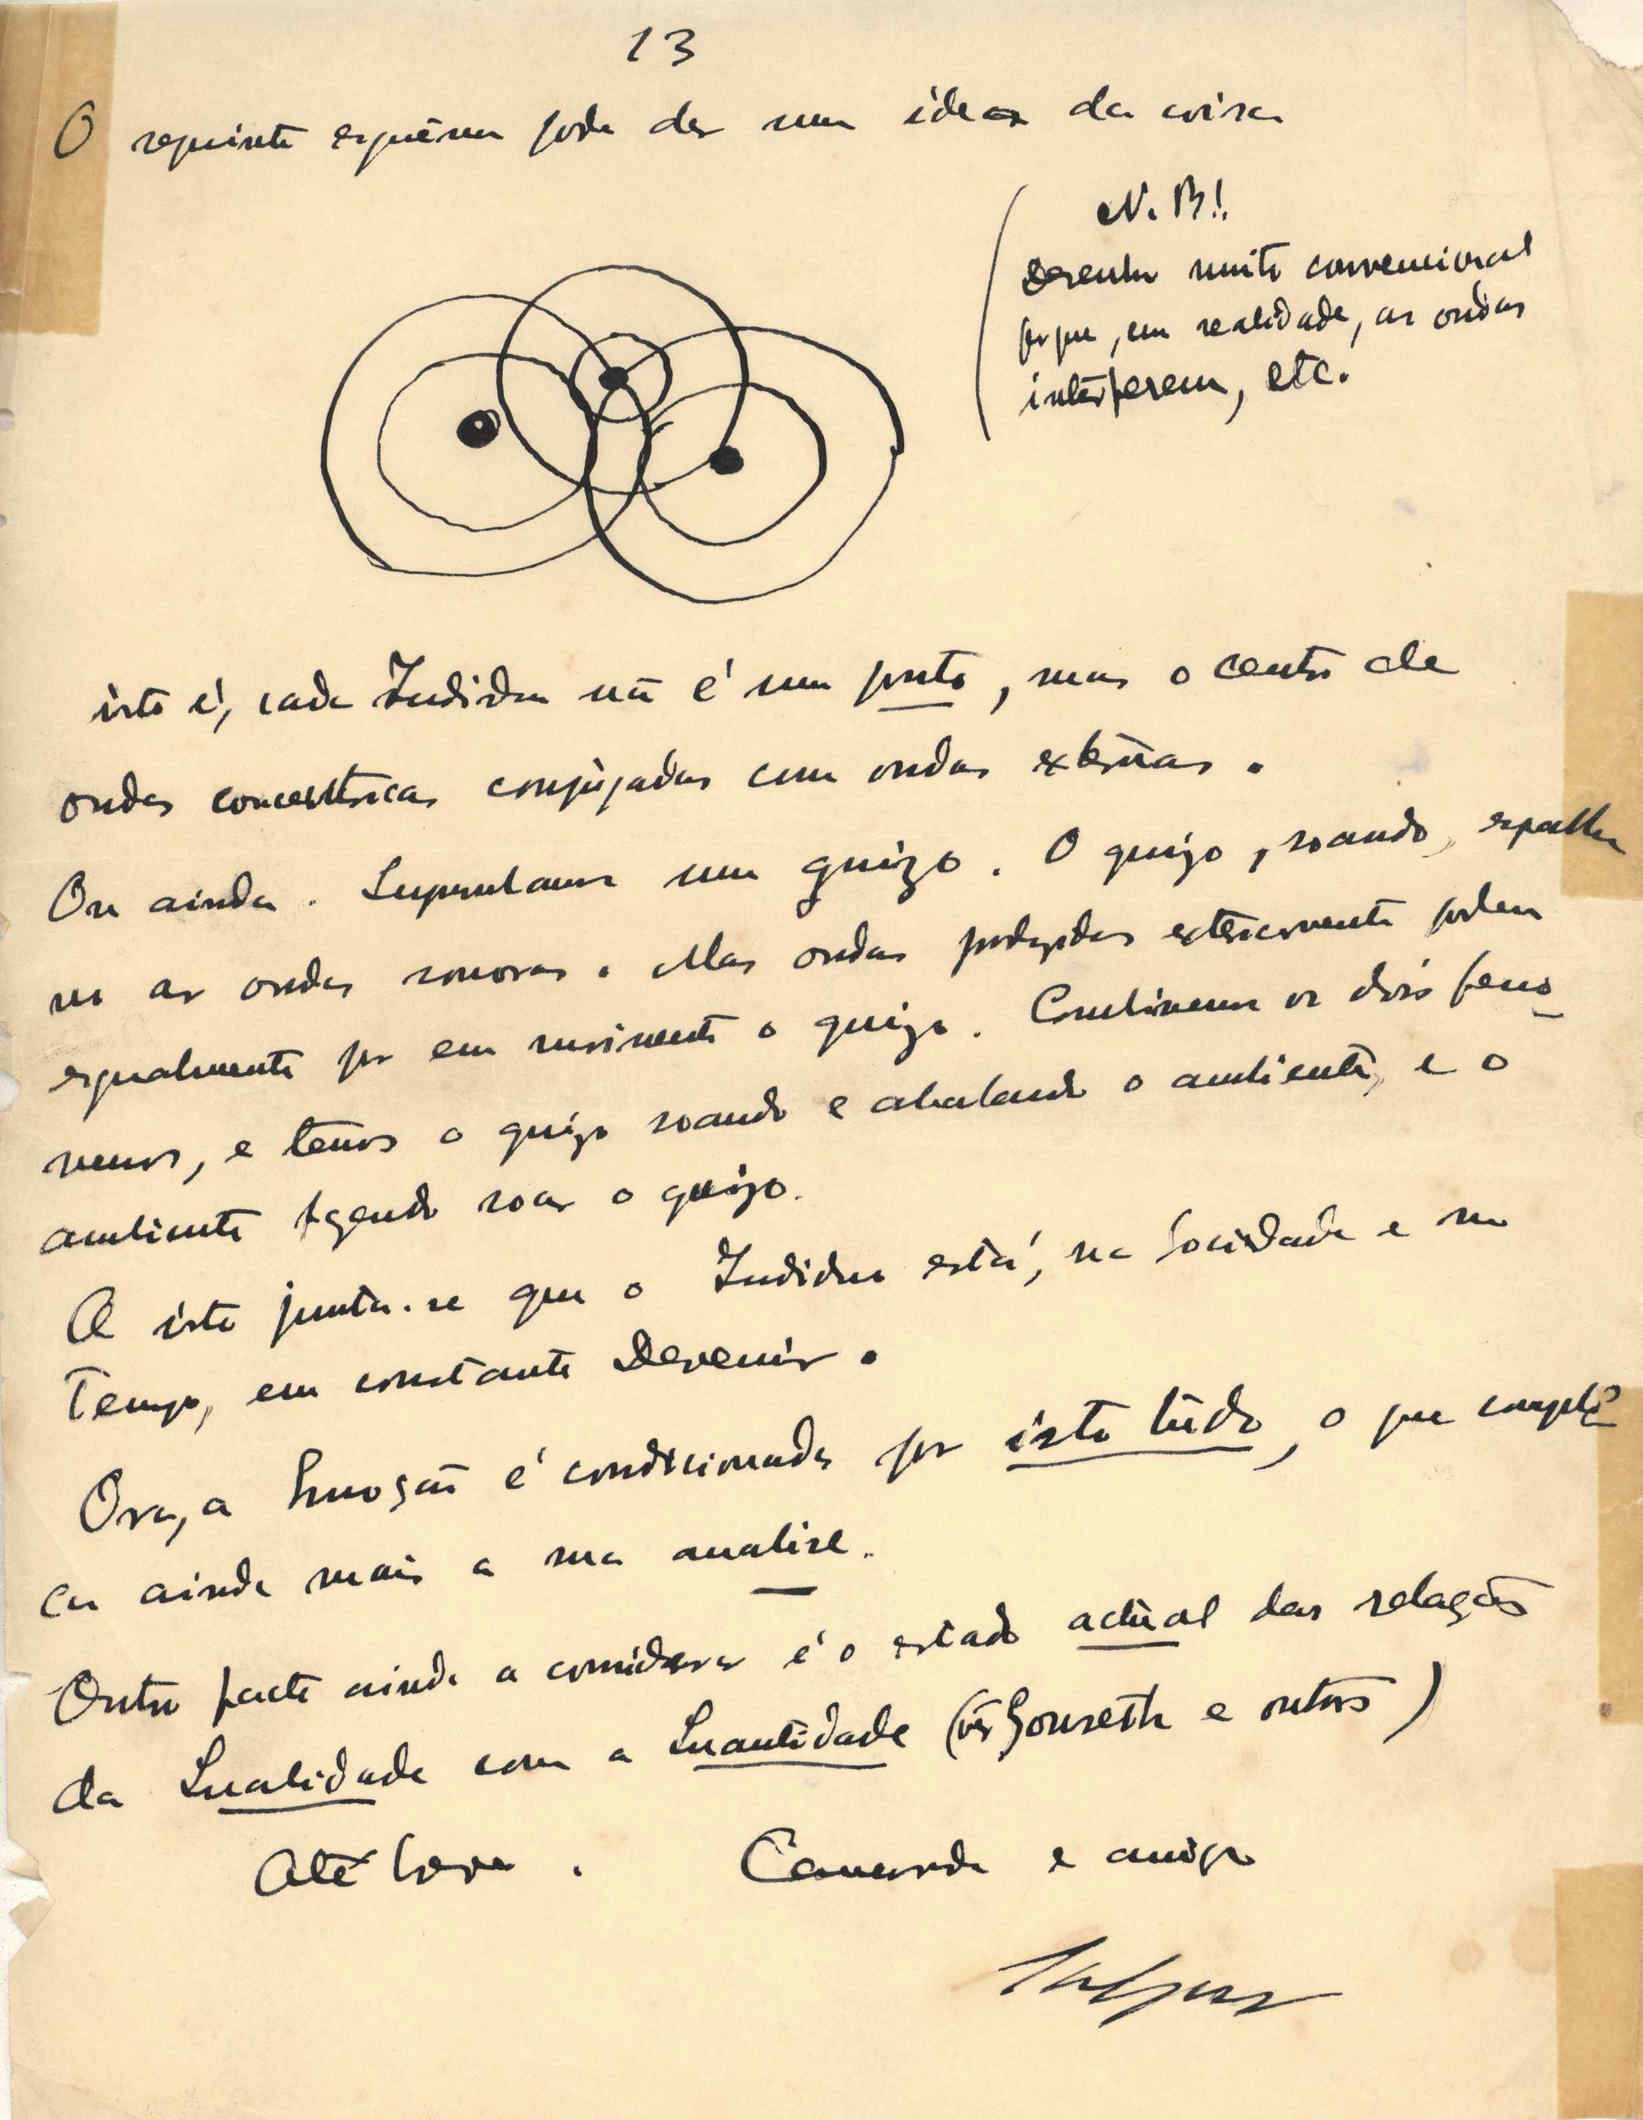 13
O seguinte esquêma pode dar uma idea da coisa
N.B!!
Desenho muito convencional
porque, em realidade, as ondas
interferem, etc.
isto é, cada Individuo não é um ponto, mas o centro de
ondas concentricas conjugadas com ondas externas.
Ou ainda. Suponhamos um guizo. O guizo, soando, espalha
no ar ondas sonoras. Mas ondas produzidas exteriormente podem
egualmente pôr em movimento o guizo. Combinemos os dois fenó-
menos, e temos o guizo soando e abalando o ambiente, e o
ambiente fazendo soar o guizo.
A isto junta-se que o Individuo está, na Sociedade e no
Tempo, em constante Devenir.
Ora, a Emoção é condicionada por isto tudo, o que compli-
ca ainda mais a sua analise.
Outro facto ainda a considerar é o estado actual das relações
da Qualidade com a Quantidade (vêr Gonseth e outros)
Até breve. Camarada e amigo